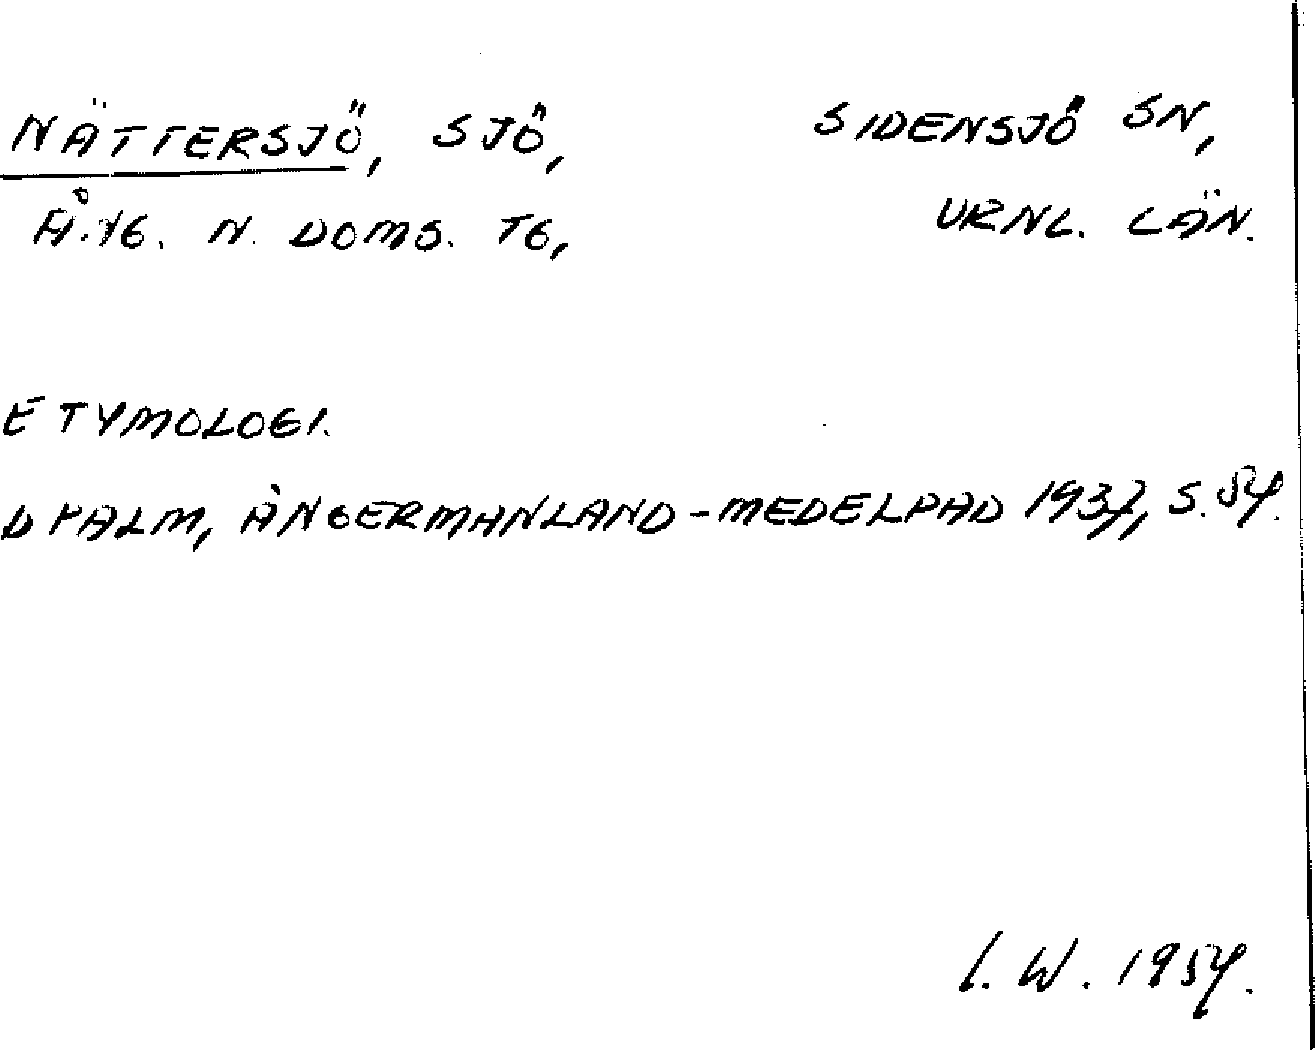 NÄTTERSJÖ, SJÖ, SIDENSJÖ SN,
ÅNG. N. DOMS. TG, VRNL. LÄN.
ETYMOLOGI.
D PALM, ÅNGERMANLAND-MEDELPAD 1937, S. 54.
I. W. 1954.